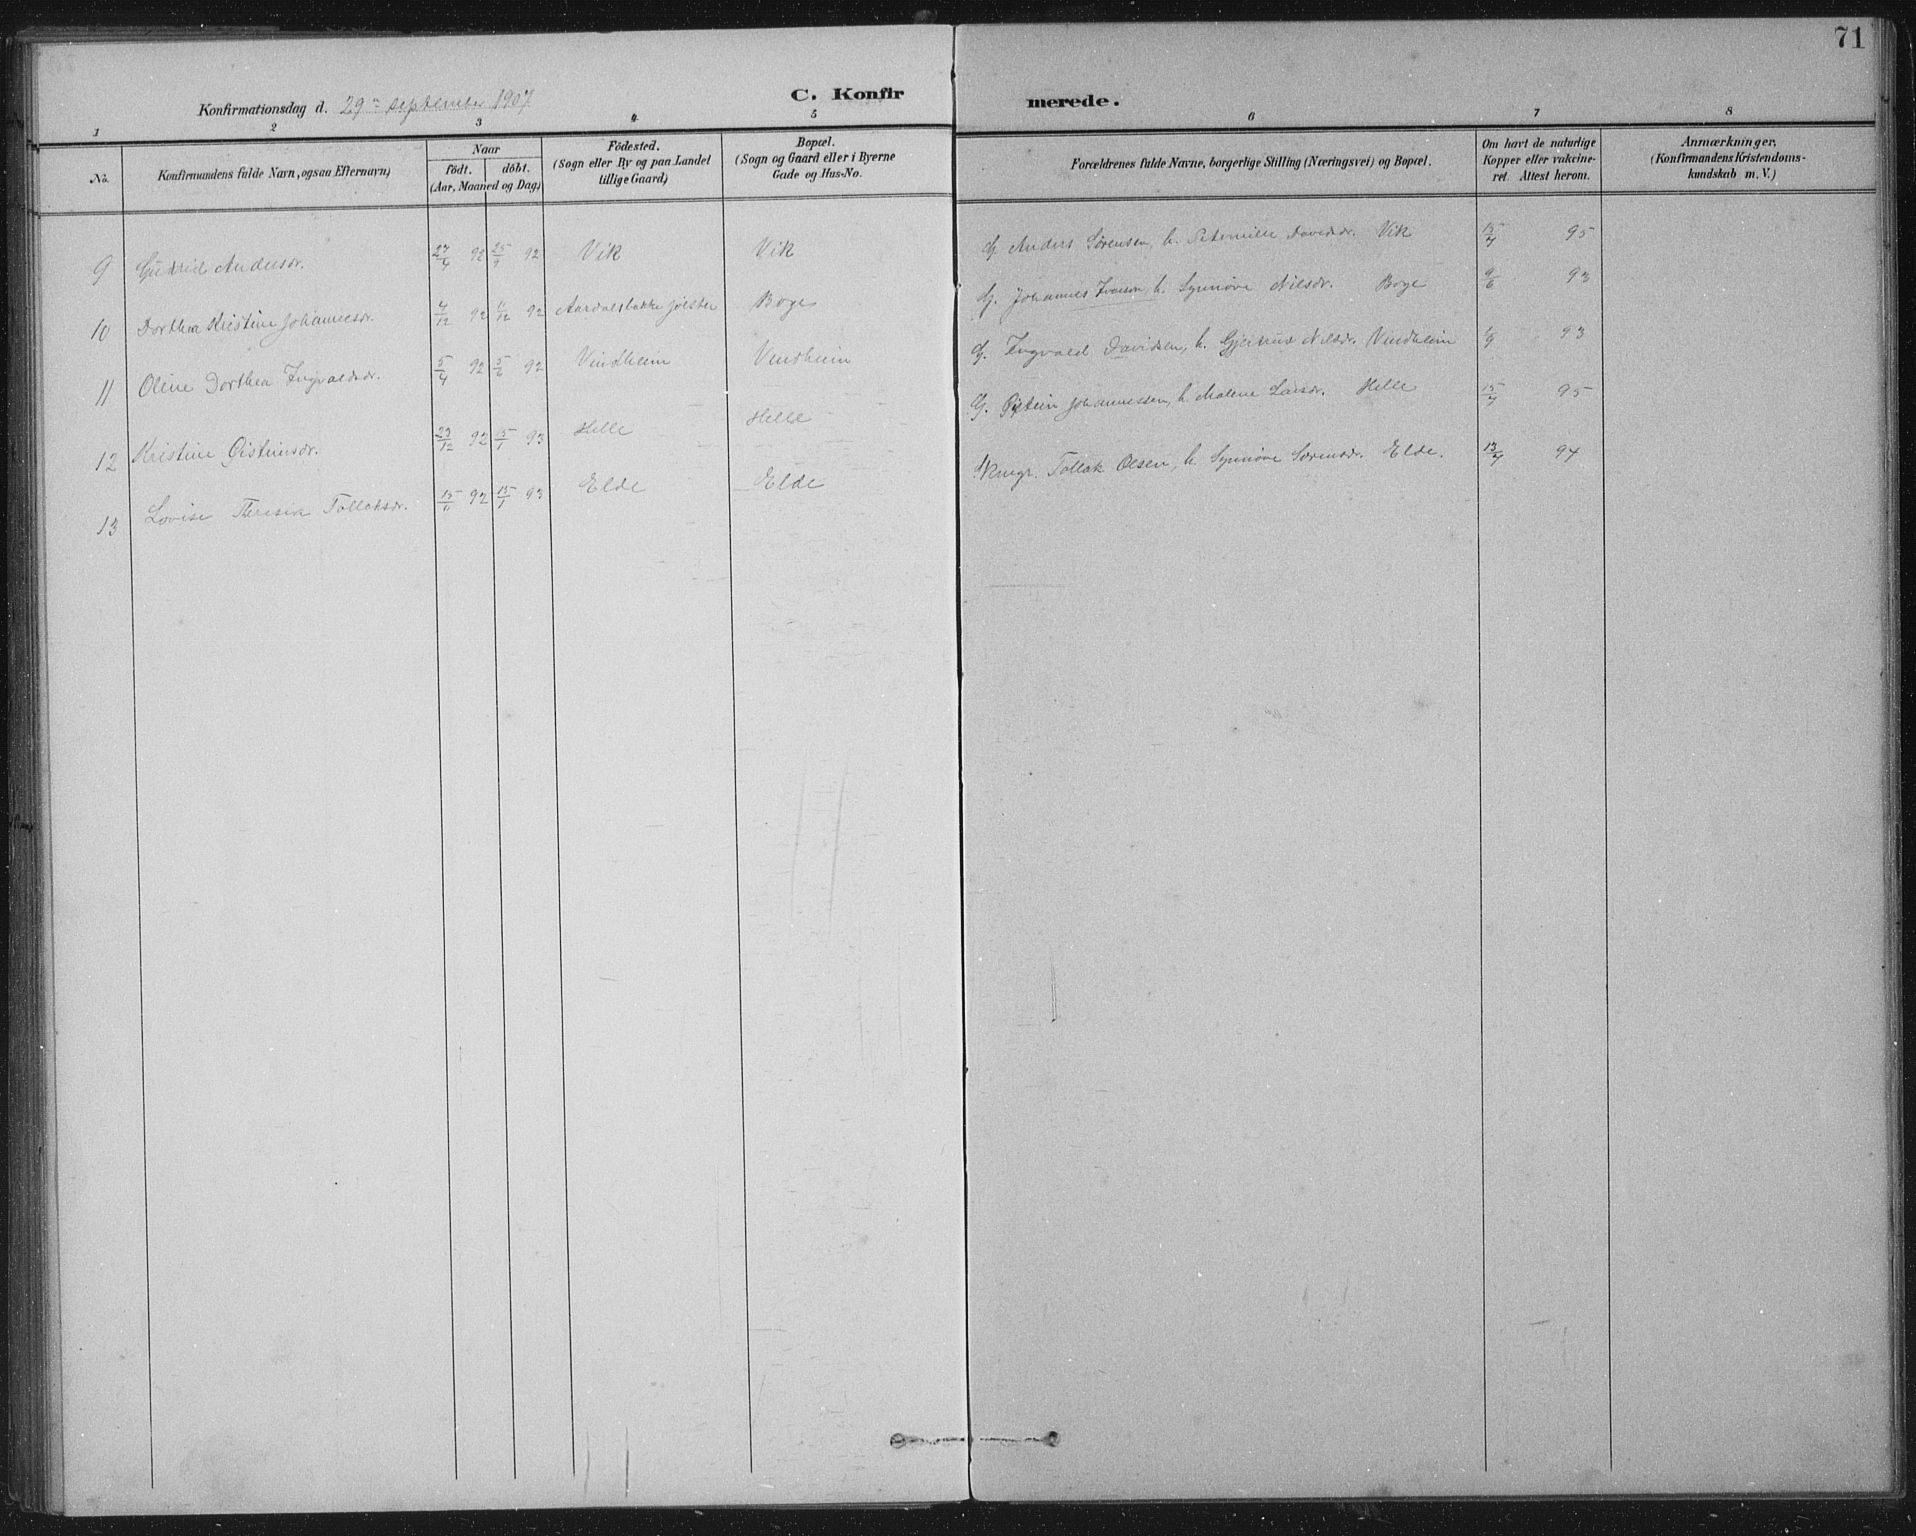 71
Konfirmationsdag d. 29de september 1907
C. Konfir merede.
1 2 3 4 5 6 7 8
No. Konfirmandens fulde Navn, ogsaa Efternavn) Naar födt. döbt. (Aar, Maaned og Dag) Födested. (Sogn eller By og paa Landet tillige Gaard) Bopæl. (Sogn og Gaard eller i Byerne Gade og Hus-No. Forældrenes fulde Navne, borgerlige Stilling (Næringsvei) og Bopæl. Om havt de naturlige Kopper eller vakcineret. Attest herom. Anmærkninger. (Konfirmandens Kristendomskundskab m. V.)
9 Gudrid Andersdr. 27/4 92 25/9 92 Vik Vik G. Anders Sørensen, h. Davidsdr. Vik 15/7 95
10 Dorthea Kristine Johannesdr. 4/12 92 11/12 92 Aardalsbakke Jølster Boge G. Johannes h. Synnøve Nilsdr. Boge 9/6 93
11 Oline Dorthea Ingvaldsdr. 5/4 92 5/6 92 Vindheim Vindheim G. Ingvald Davidsen, h. Gjertrud Nilsdr. Vindheim 93
12 Kristine Øisteinsdr. 23/12 92 15/1 93 Helle Helle G. Øistein Johannessen, h. Malene Larsdr. Helle 15/7 95
13 Lovise Theresia Tollaksdr. 15/11 92 15/1 93 Elde Elde Tollak Olsen, h. Synnøve Sørensdr. Elde. 13/7 94